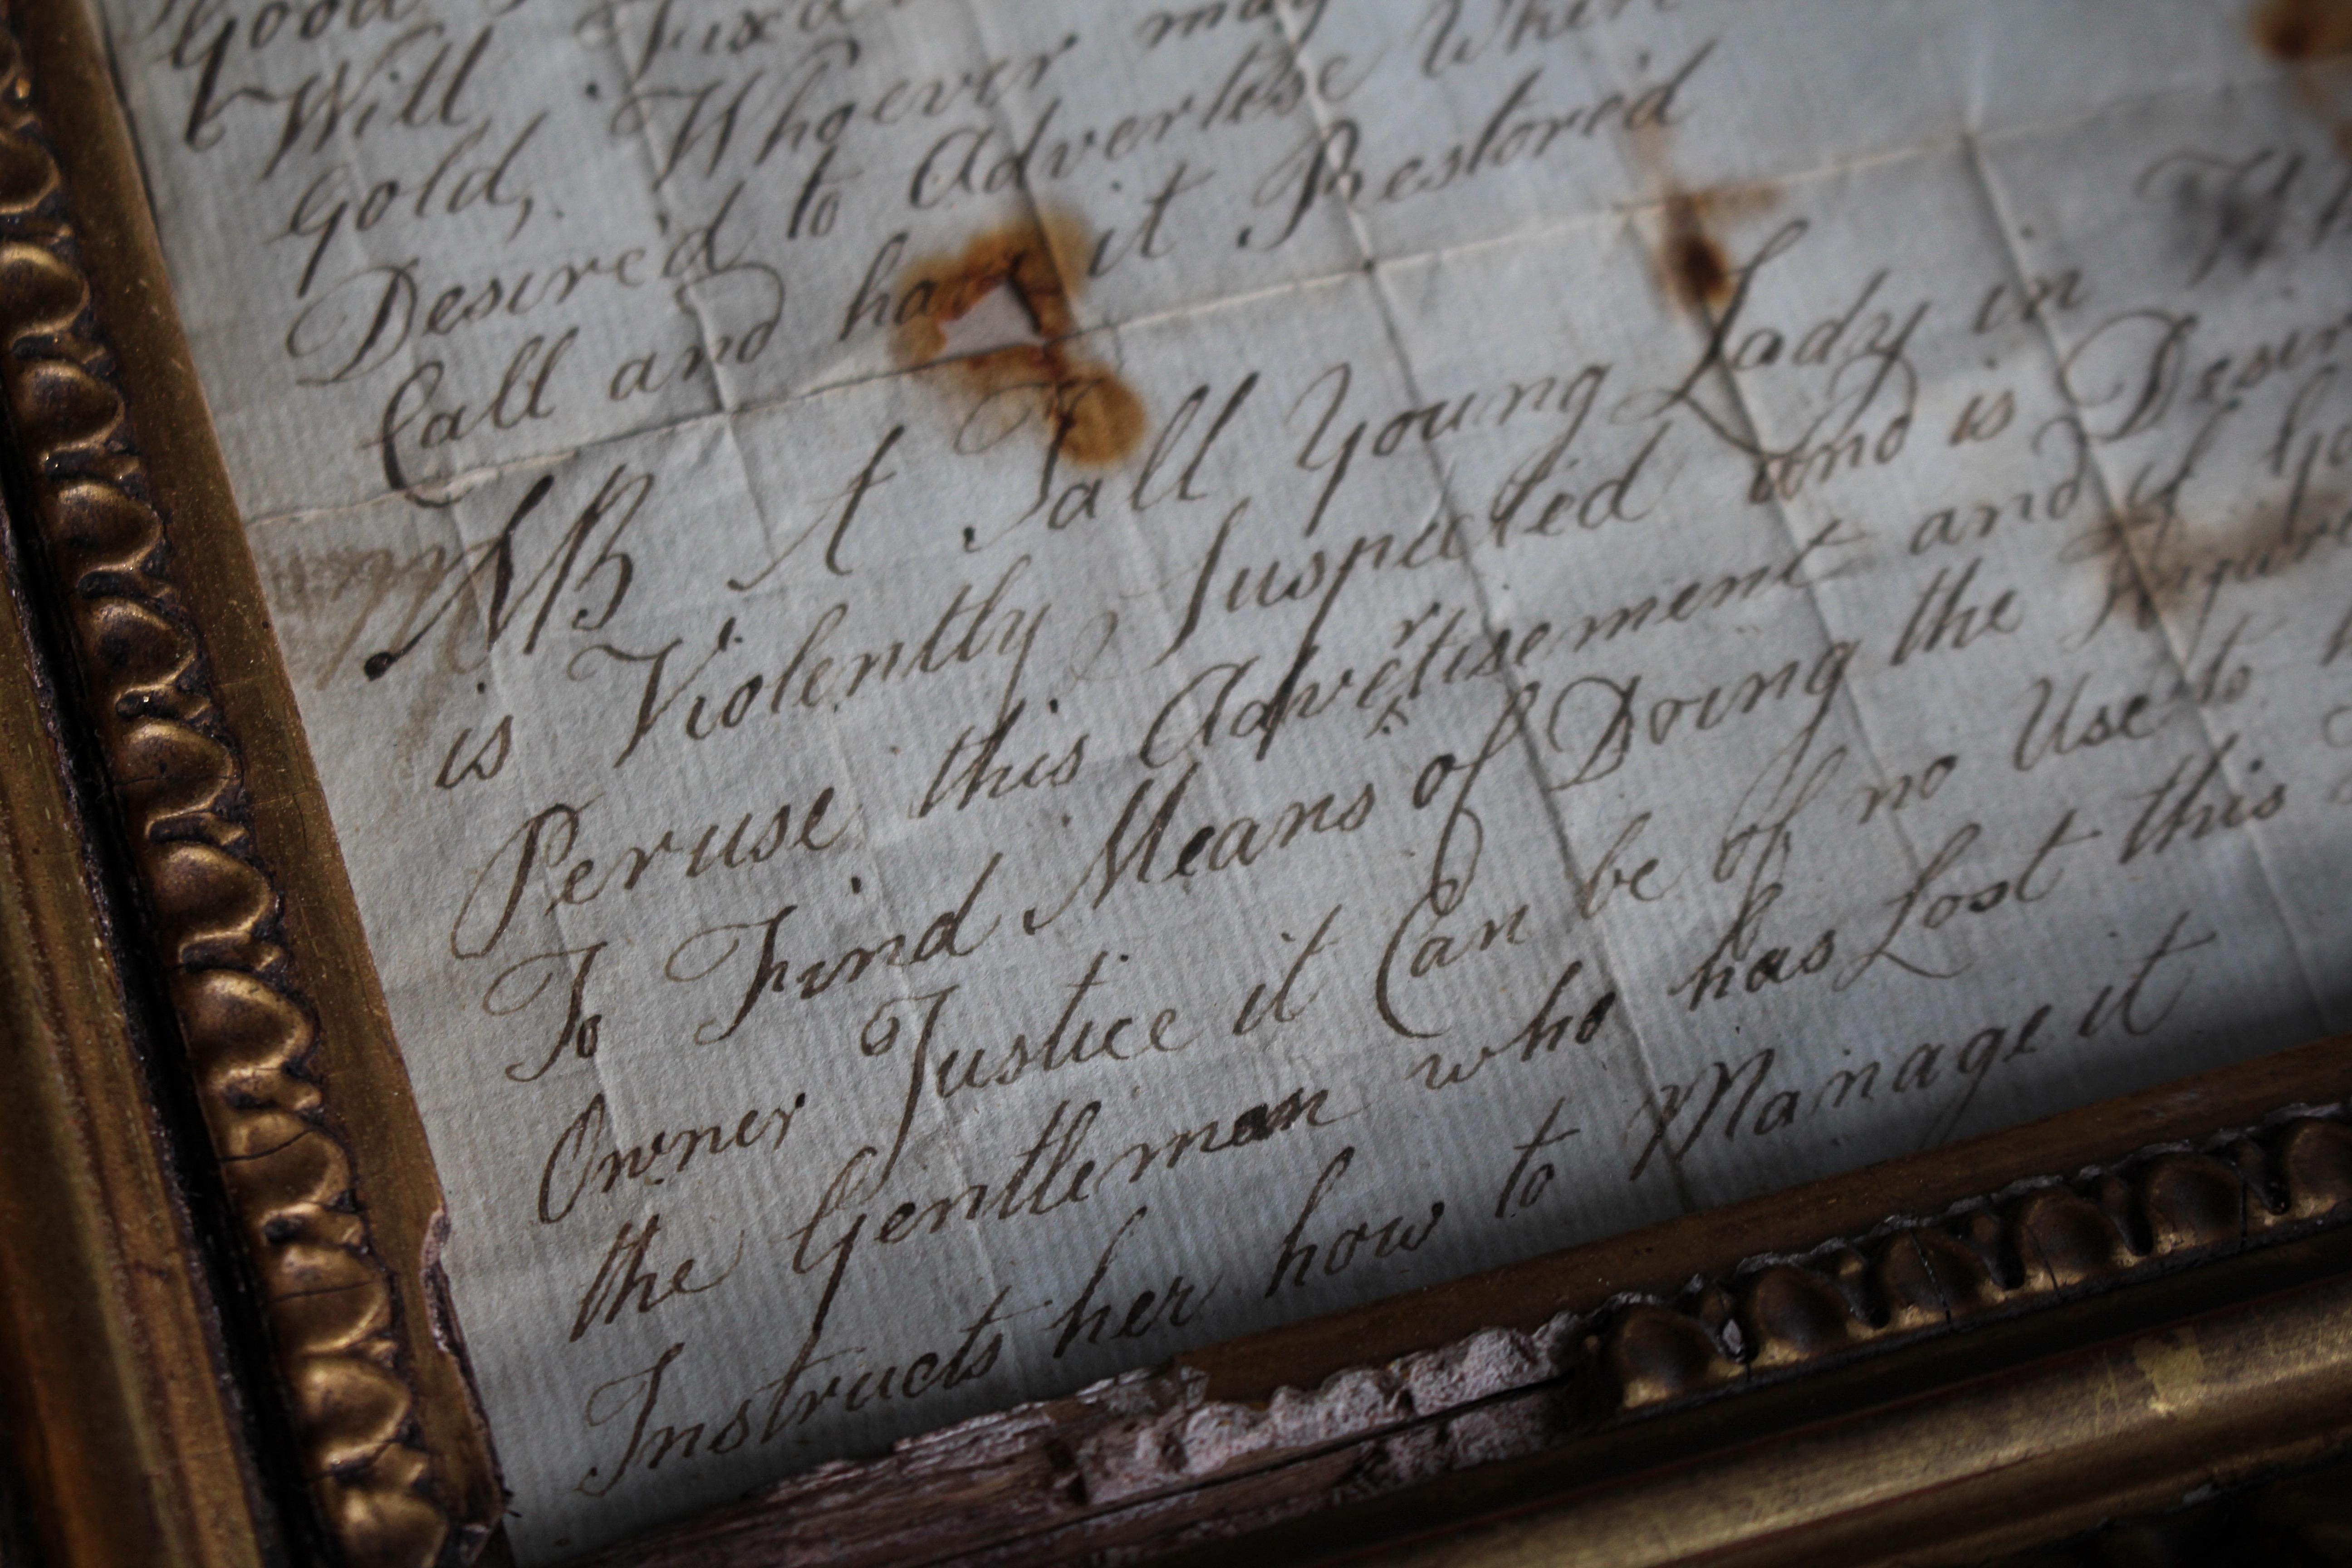 Good
Will Fix'd
Gold, Whoever may
Desire'd to Advertise Where
Call and have it Restored
NB A Tall Young Lady in
is Violently Suspected and is Desir
Peruse this Advertisement and if
To Find Means of Doing the
Owner Justice it Can be of no Use to
the Gentleman who has Lost this
Instructs her how to Manage it